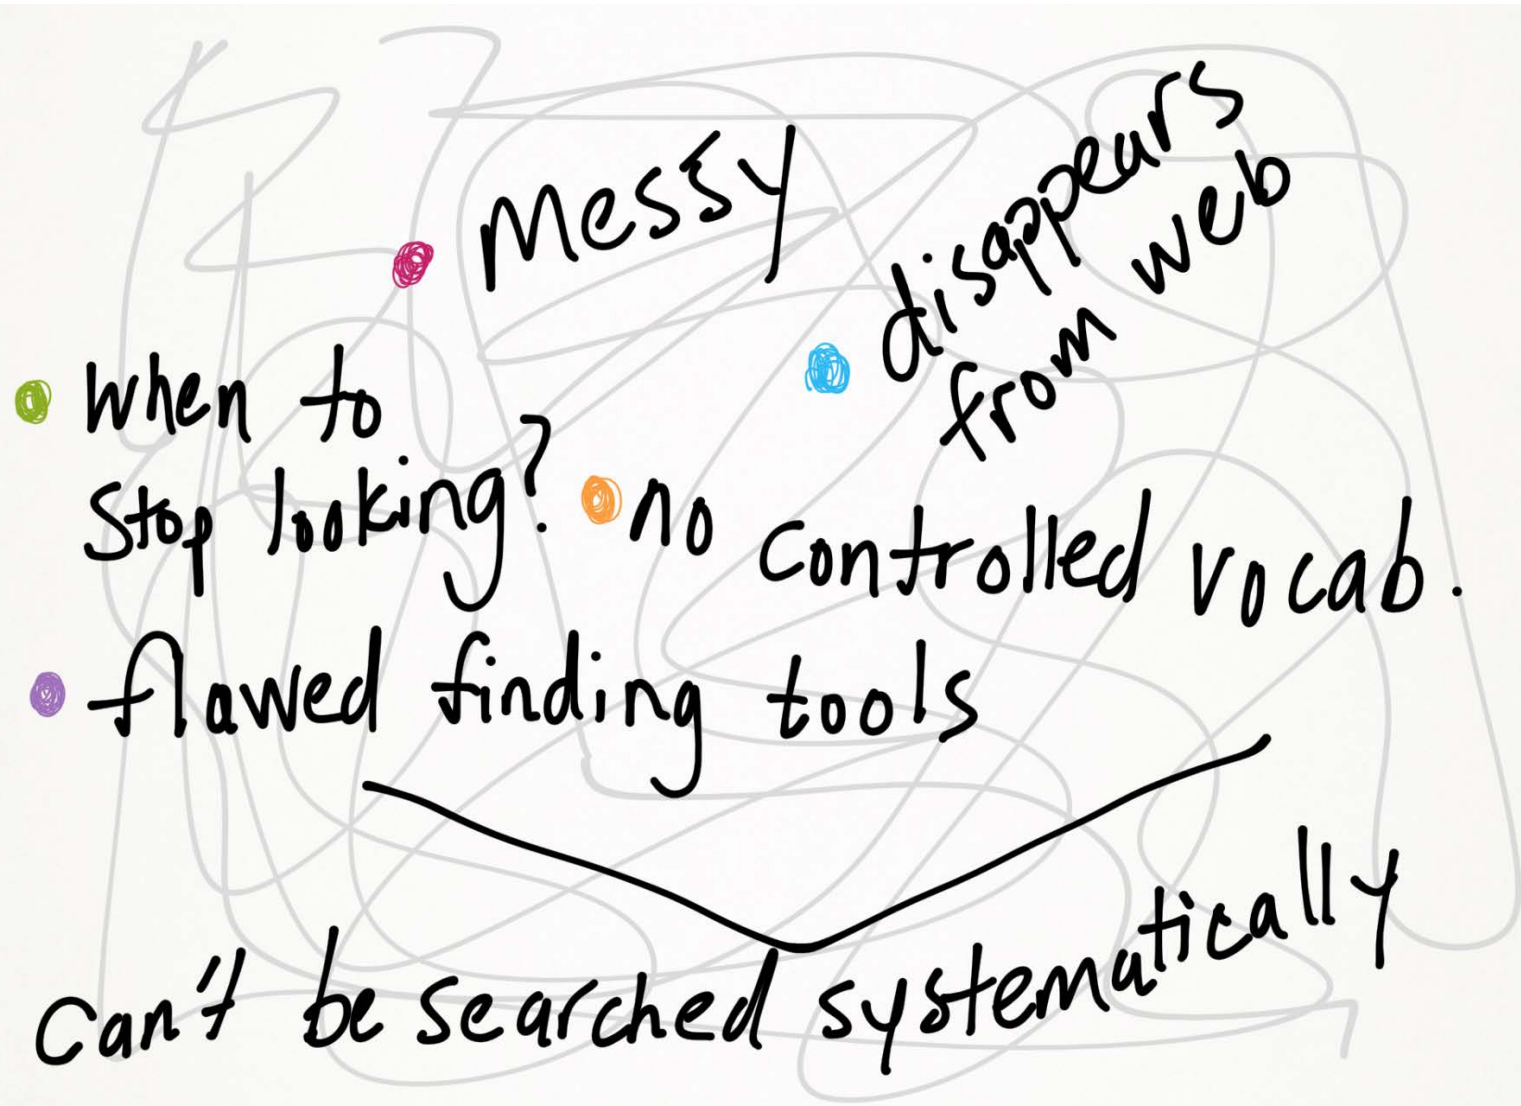 Messy
disappears
from web
when to
stop looking?
no controlled vocab.
flawed finding tools
can't be searched systematically